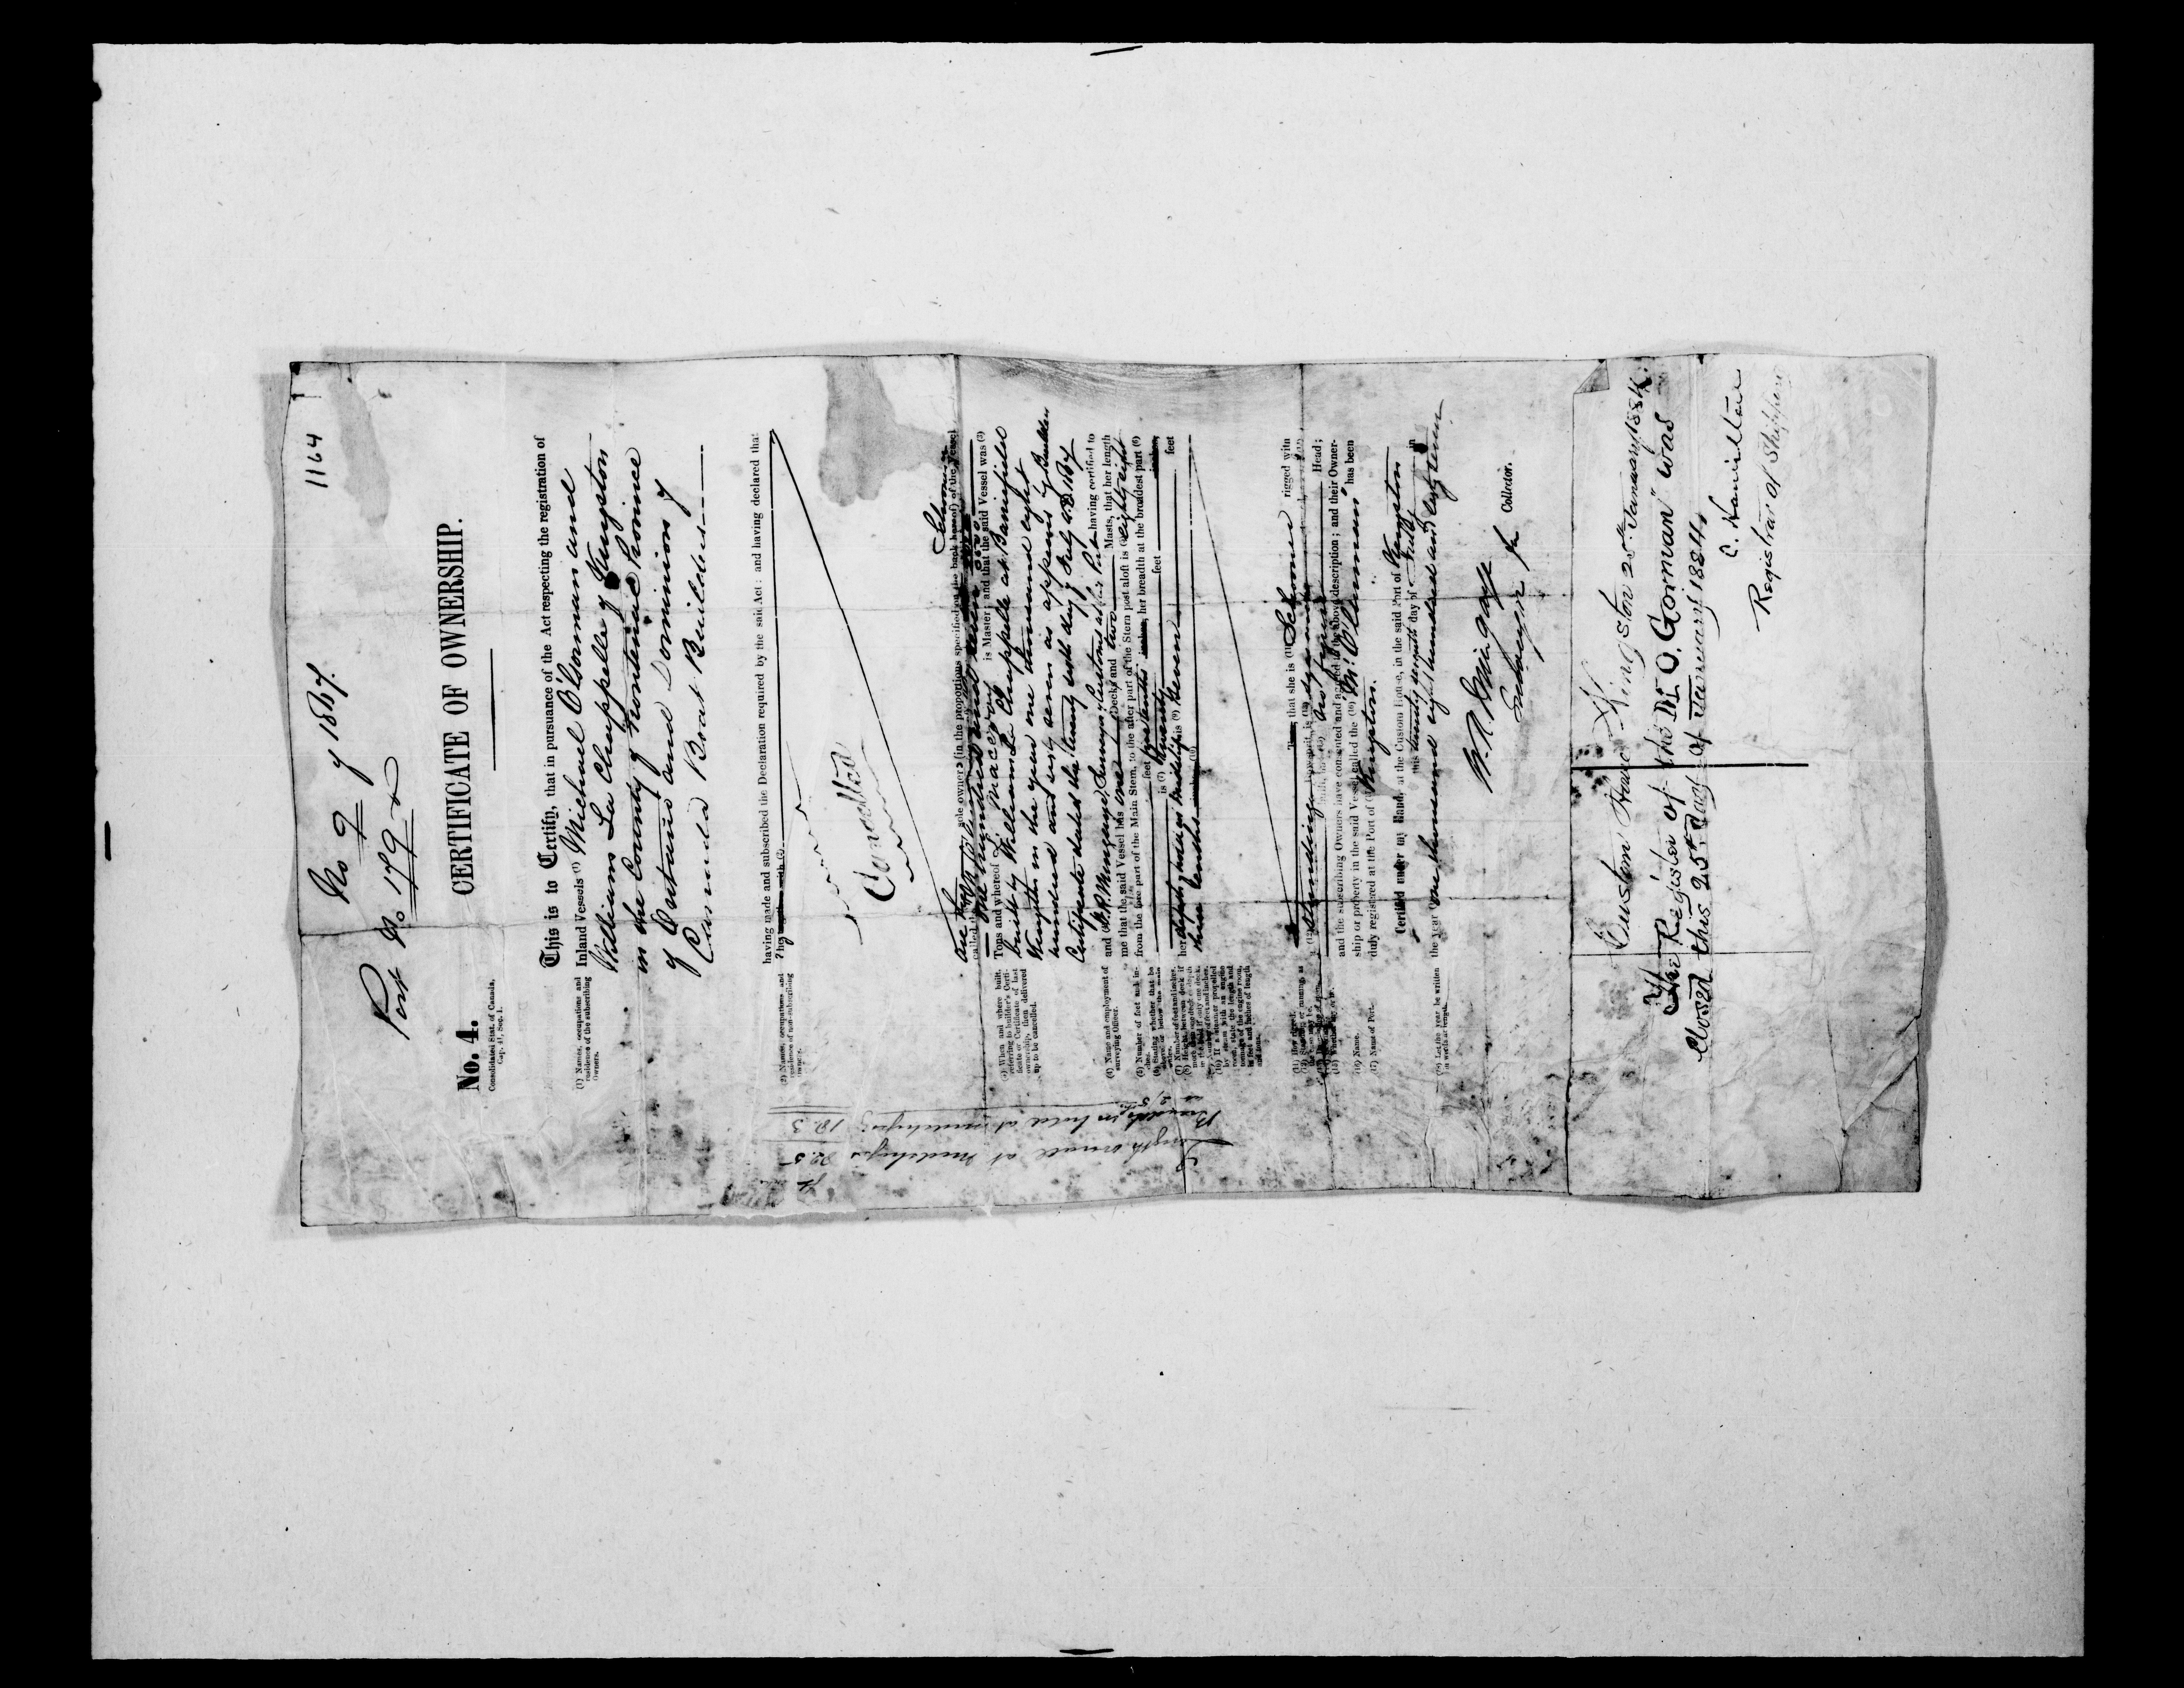 1164
No 9 of 1867.
Port No 179
No. 4.
Consolidated Stat. of Canada,
Cap. 41, Sec. 1.
CERTIFICATE OF OWNERSHIP.
This is to Certify, that in pursuance of the Act respecting the registration of
(1) Names, occupations and
residence of the subscribing
Owners.
Inland Vessels (1) Michael O'Gorman and
William La Chappelle of Kingston
in the County of Frontenac Province
of Ontario and Dominion of
Canada Boat Builders
having made and subscribed the Declaration required by the said Act: and having declared that
(2) Names, occupations and
residence of non-subscribing
Owners.
they
Cancelled
are sole owners (in the proportions specified on the back hereof) of the Vessel
Schooner
called
Tons and whereof is Master; and that the said Vessel was (3)
(3) When and where built,
referring to builder's Certi-
ficate or Certificate of last
ownership, then delivered
up to be cancelled.
built by William La Chappelle at Barriefield
Kingston in the year one thousand eight
hundred and sixty seven as appears by Builders
Certificate dated the twenty sixth day of July A.D. 1867
(4) Name and employment of
surveying Officer.
and (4) having certified to
me that the said Vessel has one Decks and two Masts, that her length
(5) Number of feet and in-
ches.
from the fore part of the Main Stem, to the after part of the Stern post aloft is (5) eighty eight
feet inches, her breadth at the broadest part (6)
(6) Stating whether that be
above or below the main
wales.
is (7) twenty feet inches,
(7) Number of feet and inches.
her depth of hold at Midships is (9) Seven feet
three tenths
(10) If a steamer propelled
by steam with an engine
room, state the length and
tonnage of the engine room,
in feet and inches of length
and tons.
Tons, that she is (11) Schooner rigged with
(11) How rigged.
a (12) Standing Bowsprit, is
Head;
and the subscribing Owners have consented and agreed to the above description; and their Owner-
(16) Name.
ship or property in the said Vessel called the (16) "M. O'Gorman" has been
(17) Name of Port.
duly registered at the Port of (17) Kingston.
Certified under my Hand, at the Custom House, in the said Port of Kingston
this twenty seventh day of July in
(18) Let the year be written
in words at length.
the year (18) one thousand eight hundred and sixty seven
Collector.
Length overall at Midships 92.5
Breadth in hold at midships 18.3
Custom House Kingston 25th January 1884.
The Register of the "M. O. Gorman" was
Closed this 25th Day of January 1884.
C. Hamilton
Registrar of Shipping